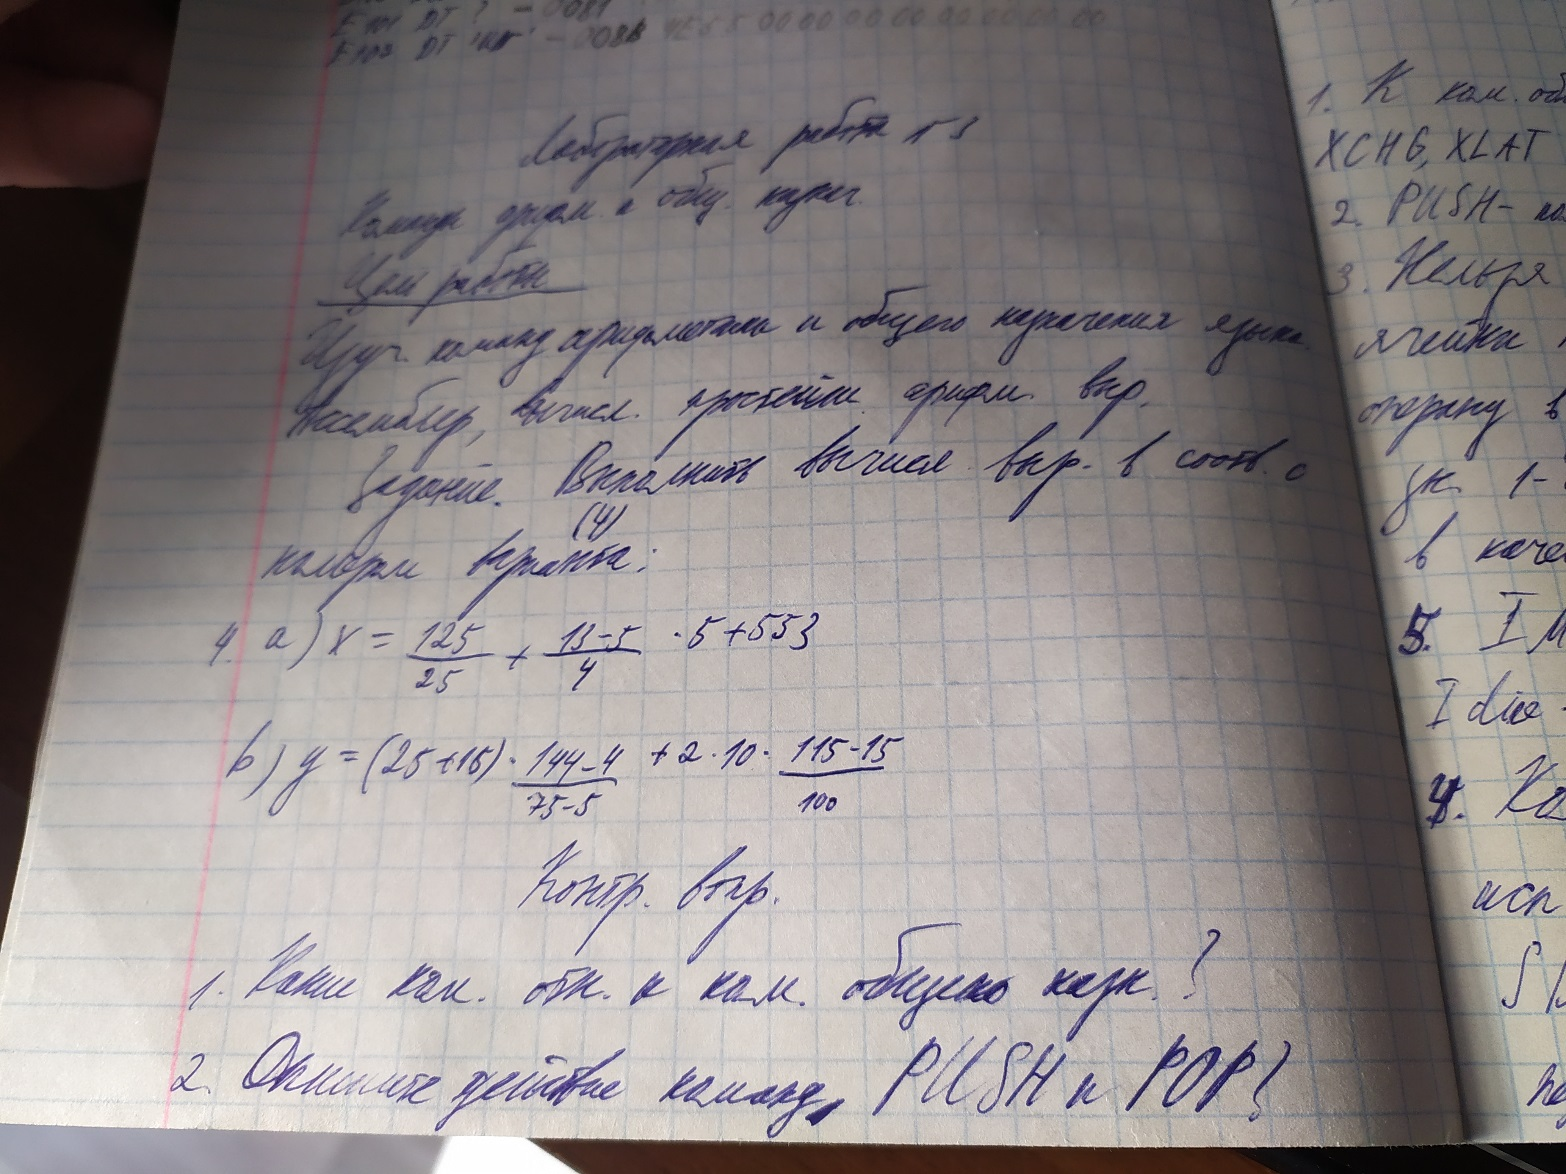 E101 DT ? - 0081
Лабораторная работа №3
Команды арифм. и общ. назнач.
Цель работы
Изуч. команд арифметики и общего назначения языка
Ассемблер, вычисл. простейш. арифм. выр.
Задание. Выполнить вычисл. выр. в соотв. с
(4)
номером варианта:
4. a) x = 125/25 + 13-5/4 · 5+553
b) y = (25+15) · 144-4/75-5 + 2·10 · 115-15/100
Контр. вопр.
1. Какие ком. отн. к ком. общего назн.?
2. Опишите действие команд PUSH и POP?
1. К ком. об
XCHG, XLAT
2. PUSH -
3. Нельзя
ячейки
операнд в
в каче
5. IM
I div
4. Ка
исп